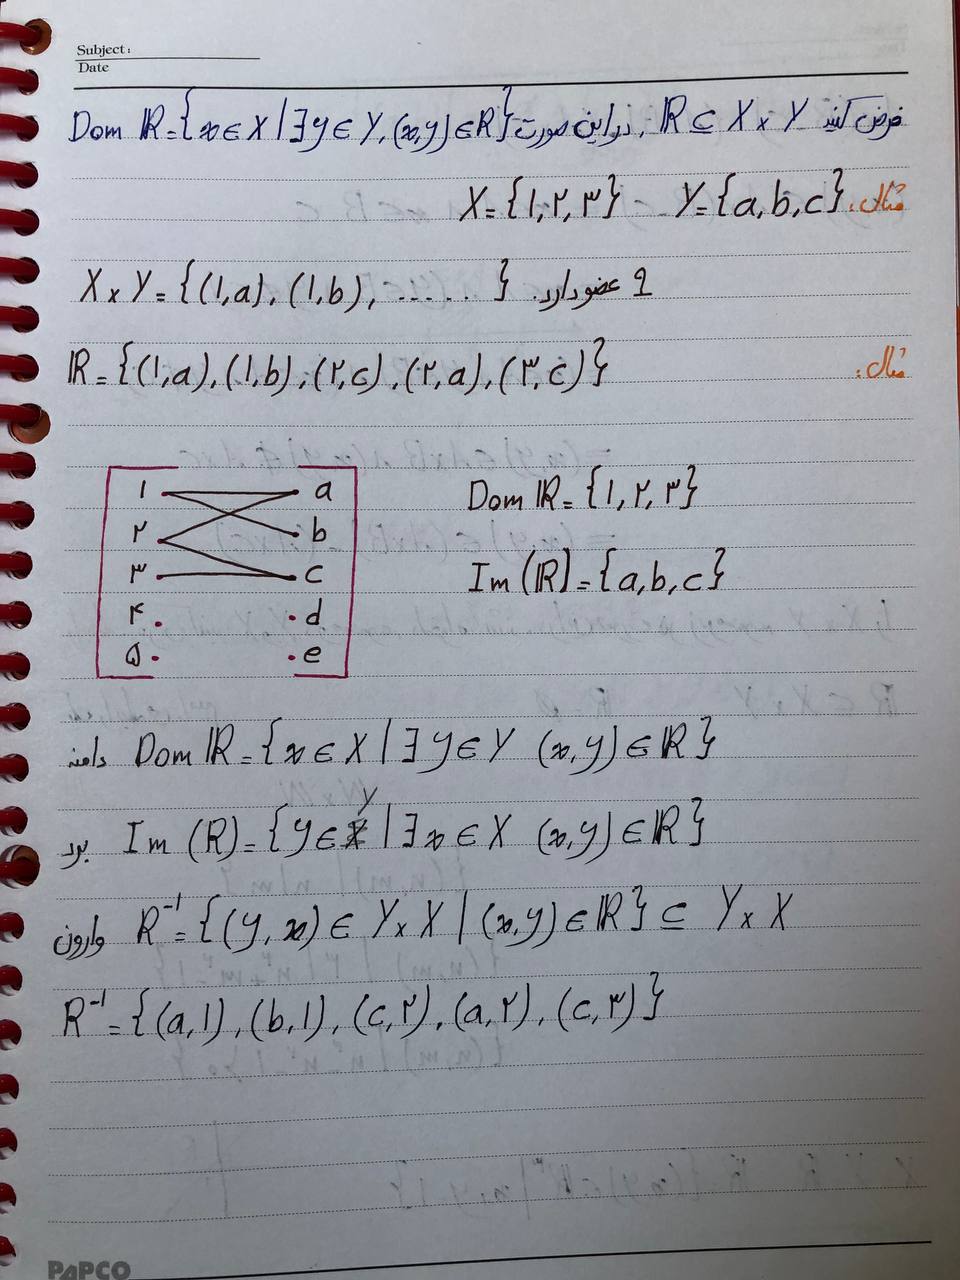 Subject:
Date
فرض کنید ℝ ⊆ X × Y ، در این صورت Dom ℝ = {x ∈ X | ∃ y ∈ Y, (x,y) ∈ ℝ}
مثال: X = {۱,۲,۳} Y = {a,b,c}
X × Y = {(۱,a), (۱,b), ..... } ۹ عضو دارد.
مثال: ℝ = {(۱,a), (۱,b), (۲,c), (۲,a), (۳,c)}
۱ a
۲ b
۳ c
۴ d
۵ e
Dom ℝ = {۱,۲,۳}
Im (ℝ) = {a,b,c}
دامنه Dom ℝ = {x ∈ X | ∃ y ∈ Y (x,y) ∈ ℝ}
برد Im (R) = {y ∈ Y | ∃ x ∈ X (x,y) ∈ ℝ}
وارون R⁻¹ = {(y,x) ∈ Y × X | (x,y) ∈ ℝ} ⊆ Y × X
R⁻¹ = {(a,۱), (b,۱), (c,۲), (a,۲), (c,۳)}
PAPCO